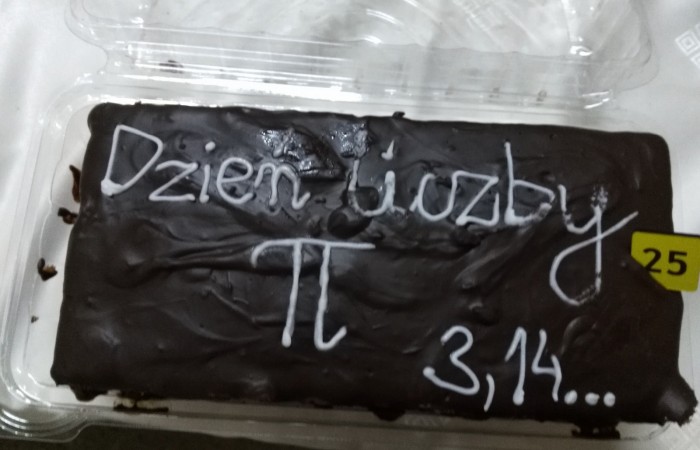 Dzień liczby
π
3,14...
25